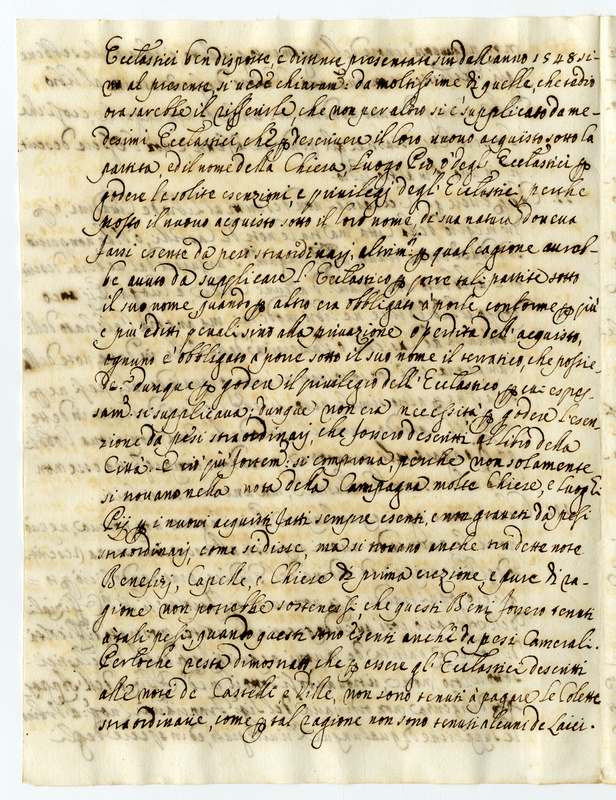 Ecclastici ben disposte, e distinte presentate sin dall'anno 1548 si-
no al presente si vede chiaram:e da moltissime di quelle, che tedio
ora sarebbe il rifferirle, che non per altro si è supplicato da me-
desimi Ecclastici, che p descrivere il loro nuovo acquisto sotto la
partita, ed il nome della Chiesa, Luogo Pio, o degl'Ecclastici p
godere le solite esenzioni, e privilegj degl'Ecclastici, perche
posto il nuovo acquisto sotto il loro nome, di sua natura doveva
farsi esente da pesi straordinarj, altrim:ti p qual cagione avreb-
be avuto da supplicare l'Ecclastico p porre tali partite sotto
il suo nome, quando p altro era obbligato a porle, conforme p più
e più editti penali sino alla privazione o perdita dell'acquisto,
ognuno è obbligato a porre sotto il suo nome il terratico, che possie-
de: dunque p godere il privilegio dell'Ecclastico p cui espres-
sam:e si supplicava; dunque non era necessità p godere l'esen-
zione da pesi straordinarj, che fossero descritti al libro della
Città. E ciò più fortem:e si comprova, perche non solamente
si trovano nella nota della Campagna molte Chiese, e Luoghi
Pij p i nuovi acquisti fatti sempre esenti, e non gravati da pesi
straordinarj, come si disse, ma si trovano anche tra dette note
Benefizj, Capelle, e Chiese di prima erezione, e pure di ra-
gione non potrebbe sostenersi, che questi Beni fossero tenuti
a tali pesi, quando questi sono esenti anche da pesi Camerali.
Perloche resta dimostrato, che p essere gl'Ecclastici descritti
alle note de Castelli e Ville, non sono tenuti à pagare le Colette
straordinarie, come p tal ragione non sono tenuti alcuni de Laici.